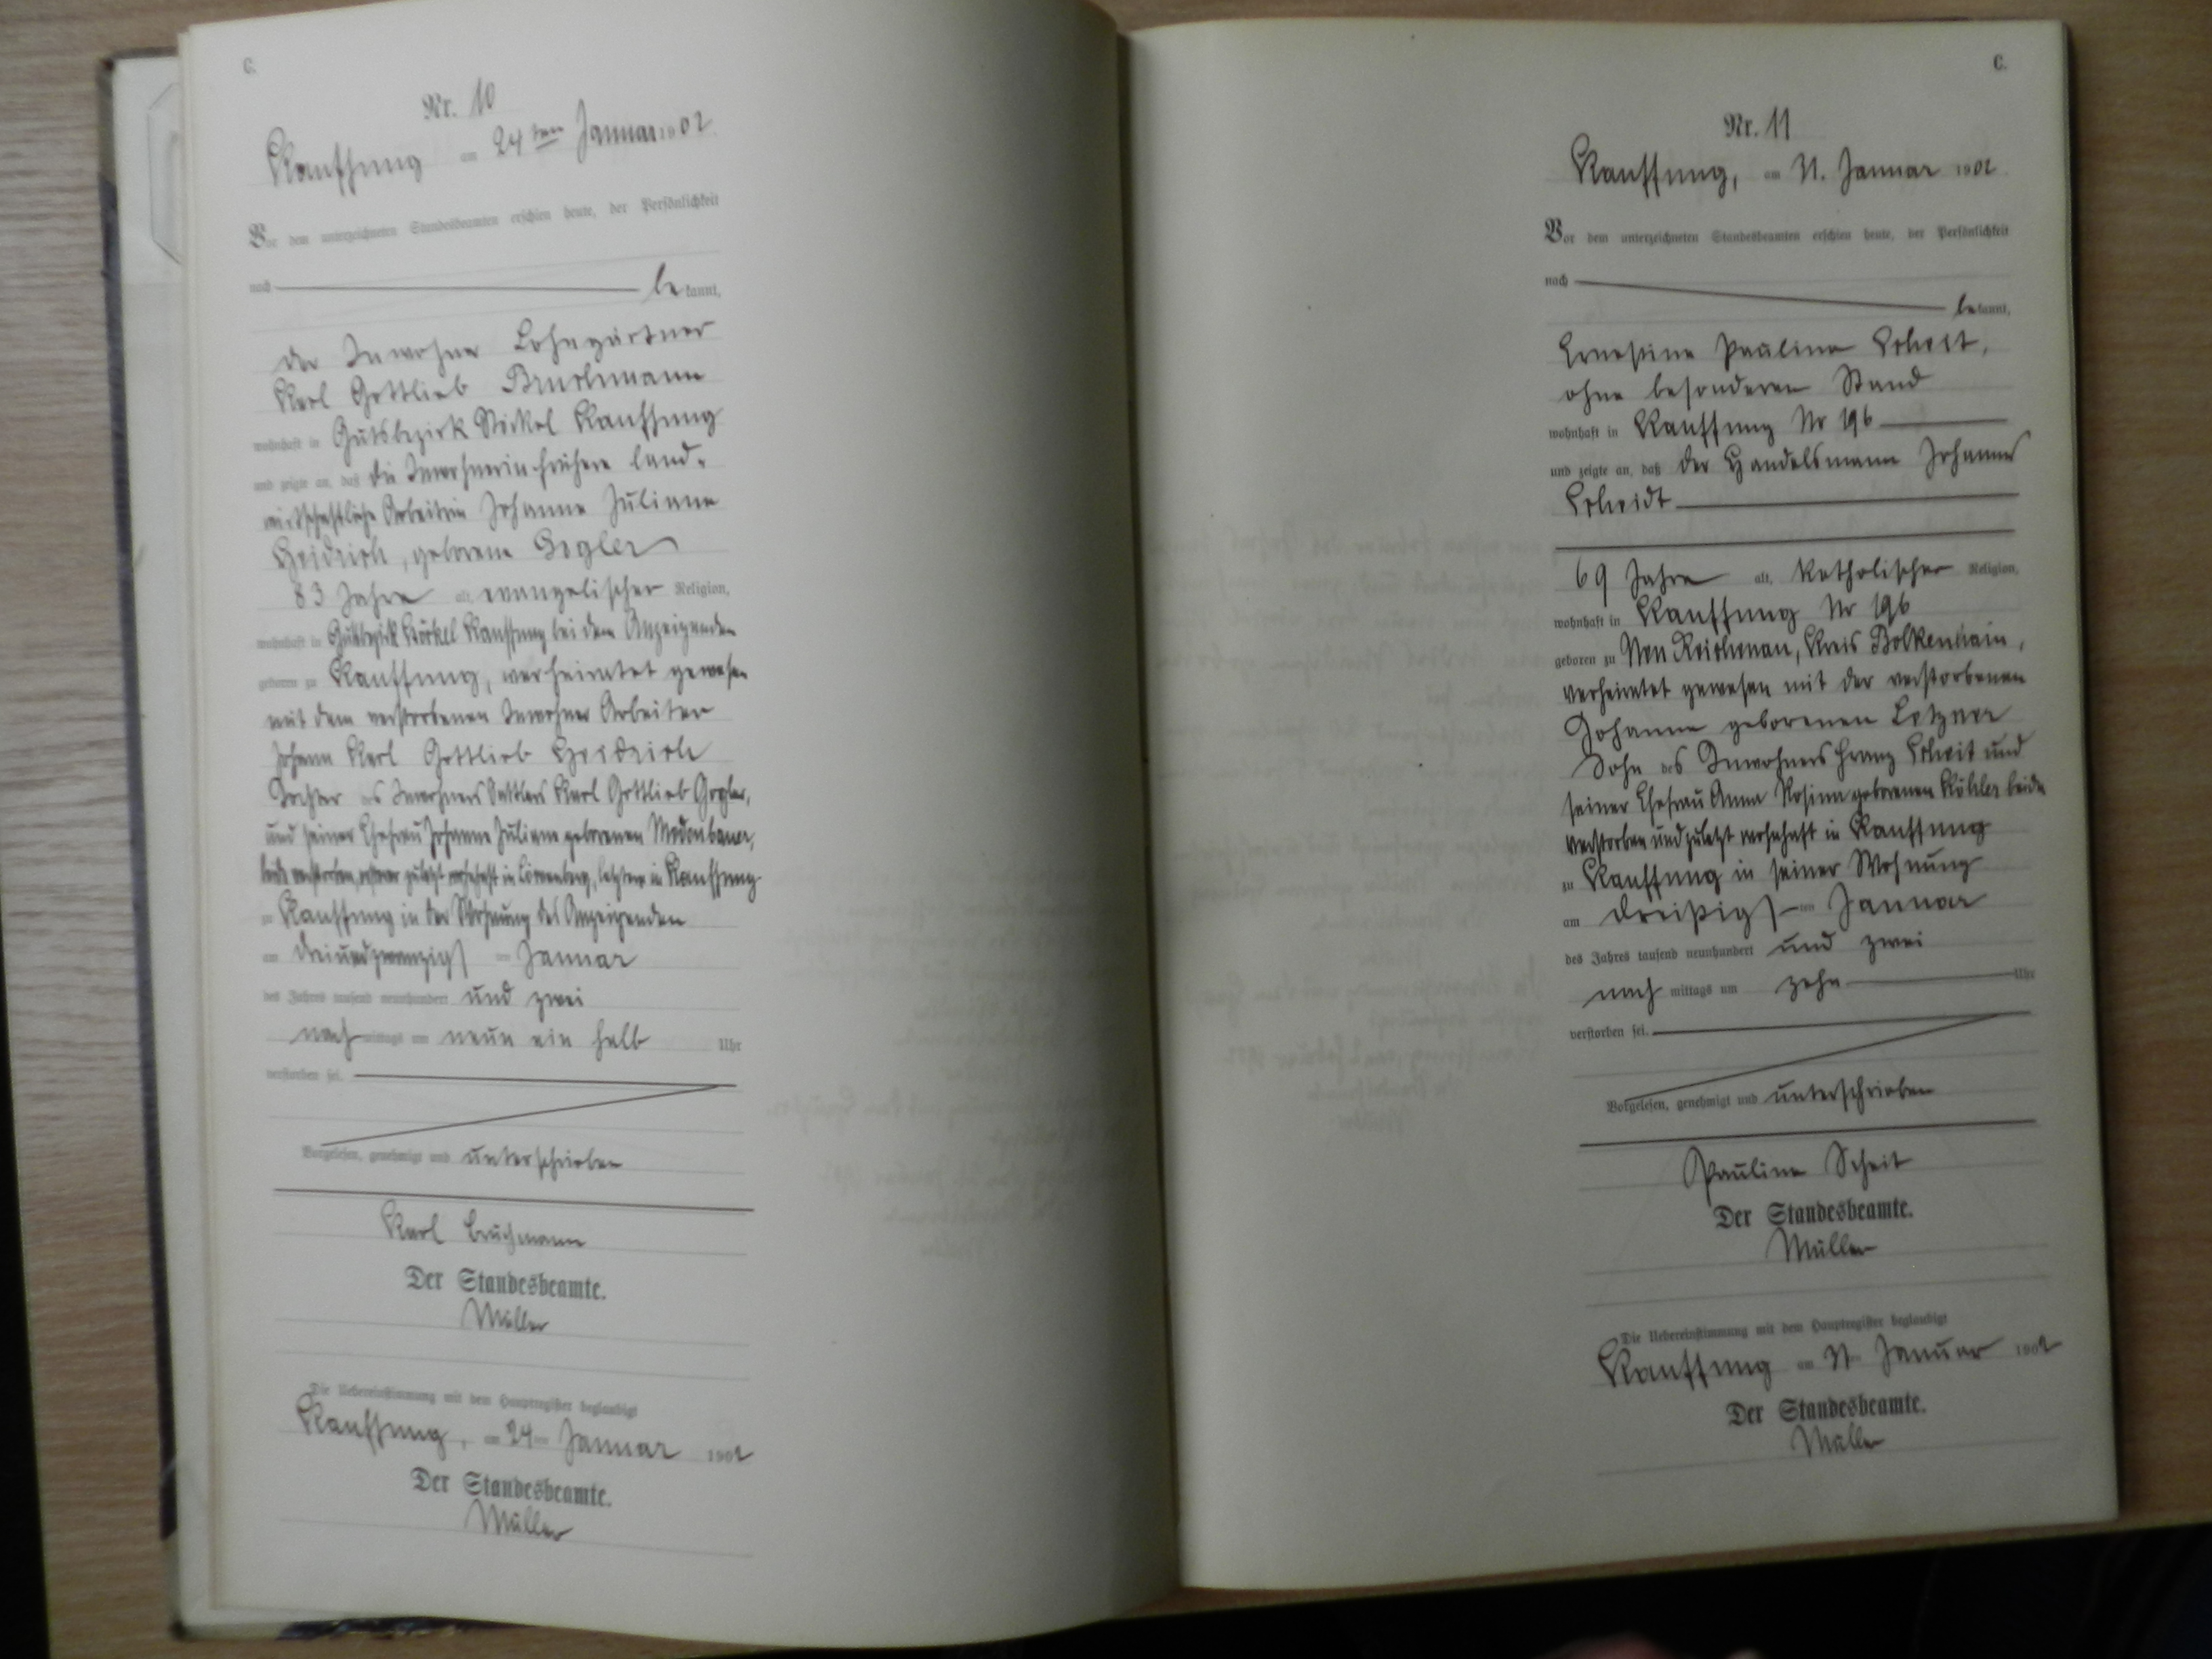 C.
Nr. 10
Kauffung am 24ten Januar 1902
Vor dem unterzeichneten Standesbeamten erschien heute, der Persönlichkeit
nach be kannt,
der Inwohner Lohngärtner
Karl Gottlieb Bruchmann
wohnhaft in Gutsbezirk Stöckel Kauffung
und zeigte an, daß die Inwohnerin frühere land-
wirtschaftliche Arbeiterin Johanne Juliane
Heidrich, geborene Gogler
83 Jahre alt, evangelischer Religion,
wohnhaft in Gutsbezirk Stöckel Kauffung bei dem Anzeigenden
geboren zu Kauffung, verheiratet gewesen
mit dem verstorbenen Inwohner Arbeiter
Johann Karl Gottlieb Heidrich
Tochter des Inwohners Karl Gottlieb Gogler,
und seiner Ehefrau Johanne Juliane geborenen
beide verstorben, zuletzt wohnhaft in letztere in Kauffung
zu Kauffung in der Wohnung des Anzeigenden
am dreiundzwanzigsten Januar
des Jahres tausend neunhundert und zwei
nach mittags um neun ein halb Uhr
verstorben sei.
Vorgelesen, genehmigt und unterschrieben
Karl Bruchmann
Der Standesbeamte.
Müller
Die Uebereinstimmung mit dem Hauptregister beglaubigt
Kauffung, am 24ten Januar 1902
Der Standesbeamte.
Müller
C.
Nr. 11
Kauffung, am 31. Januar 1902
Vor dem unterzeichneten Standesbeamten erschien heute, der Persönlichkeit
nach be kannt,
Ernestine Pauline Scheit,
ohne besonderen Stand
wohnhaft in Kauffung Nr 196
und zeigte an, daß der Handelsmann Johannes
Scheidt
69 Jahre alt, katholischer Religion,
wohnhaft in Kauffung Nr 196
geboren zu Neu Reichenau, Kreis Bolkenhain,
verheiratet gewesen mit der verstorbenen
Johanne geborenen
Sohn des Inwohners Franz Scheit und
seiner Ehefrau Anna Rosina geborenen Köhler beide
verstorben und zuletzt wohnhaft in Kauffung
zu Kauffung in seiner Wohnung
am dreißigsten Januar
des Jahres tausend neunhundert und zwei
nach mittags um zehn Uhr
verstorben sei.
Vorgelesen, genehmigt und unterschrieben
Pauline Scheit
Der Standesbeamte.
Müller
Die Uebereinstimmung mit dem Hauptregister beglaubigt
Kauffung am 31 Januar 1902
Der Standesbeamte.
Müller